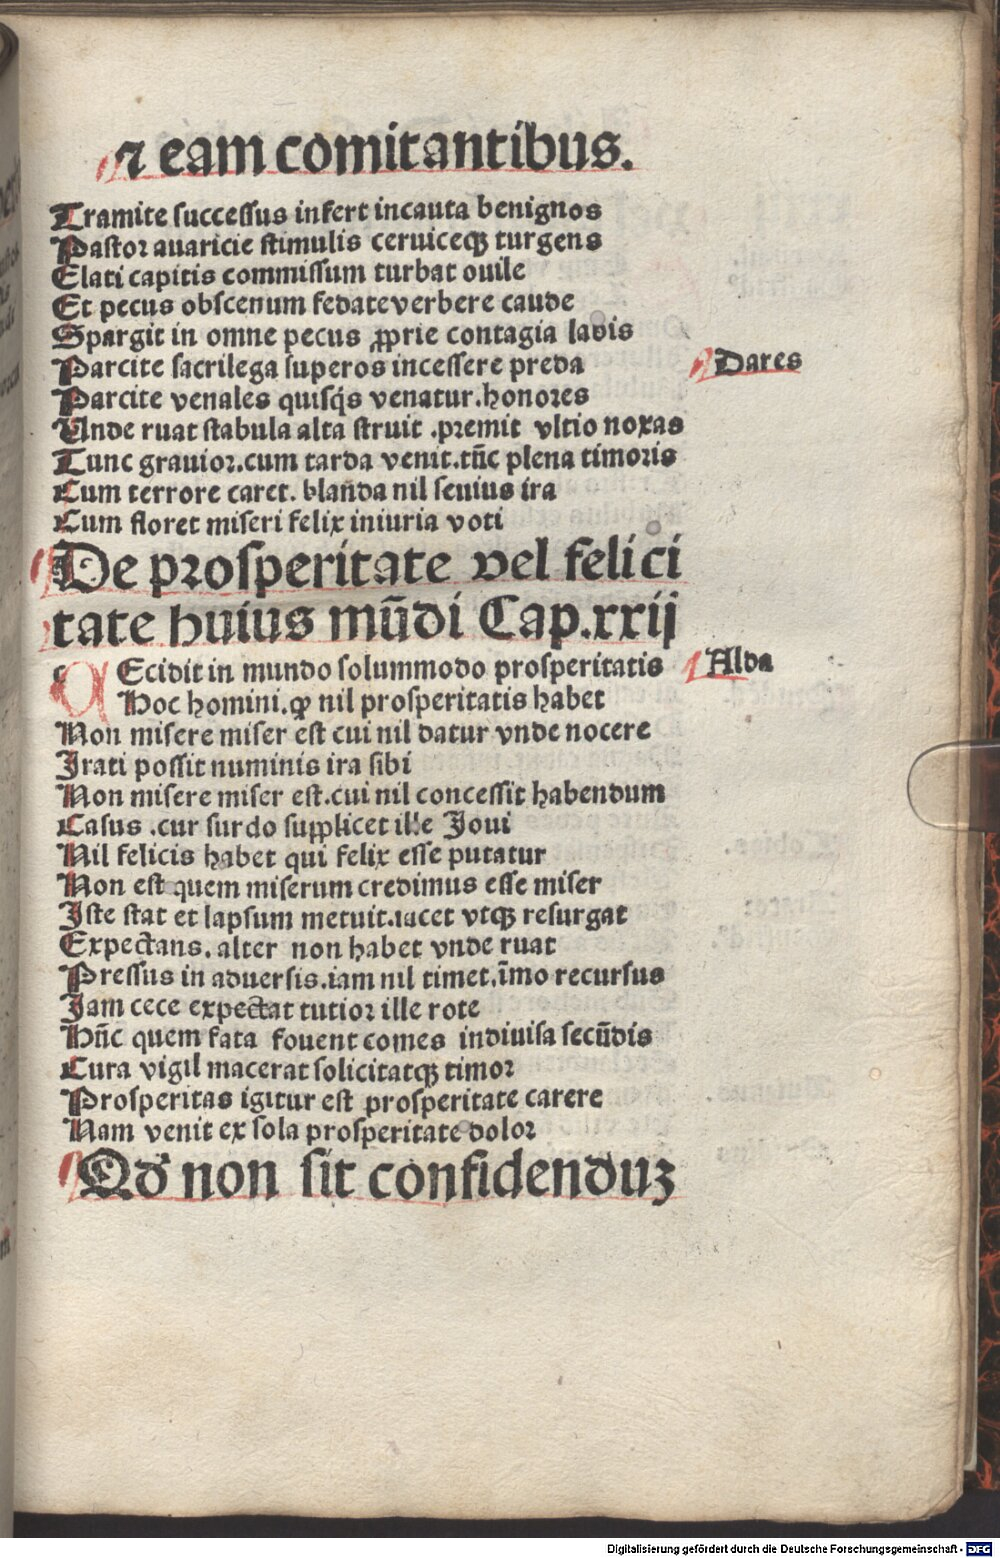 ⁊ eam comitantibus.
Tramite successus infert incauta benignos
Pastor auaricie stimulis ceruiceqꝫ turgens
Elati capitis commissum turbat ouile
Et pecus obscenum fedate verbere caude
Spargit in omne pecus ꝓprie contagia labis
Parcite sacrilega superos incessere preda
Dares
Parcite venales quisq̃s venatur.honores
Unde ruat stabula alta struit .premit vltio noxas
Tunc grauior.cum tarda venit.tũc plena timoris
Cum terrore caret. blanda nil seuius ira
Cum floret miseri felix iniuria voti
De prosperitate vel felici
tate huius mũdi Cap.xxij
Ecidit in mundo solummodo prosperitatis
Alda
Hoc homini.ꝙ nil prosperitatis habet
Non misere miser est cui nil datur vnde nocere
Irati possit numinis ira sibi
Non misere miser est.cui nil concessit habendum
Casus .cur surdo supplicet ille Joui
Nil felicis habet qui felix esse putatur
Non est quem miserum credimus esse miser
Iste stat et lapsum metuit.iacet vtqꝫ resurgat
Expectans. alter non habet vnde ruat
Pressus in aduersis.iam nil timet.ĩmo recursus
Jam cece expectat tutior ille rote
Hũc quem fata fouent comes indiuisa secũdis
Cura vigil macerat solicitatqꝫ timor
Prosperitas igitur est prosperitate carere
Nam venit ex sola prosperitate dolor
Qd' non sit confidenduꝫ
Digitalisierung gefördert durch die Deutsche Forschungsgemeinschaft - DFG